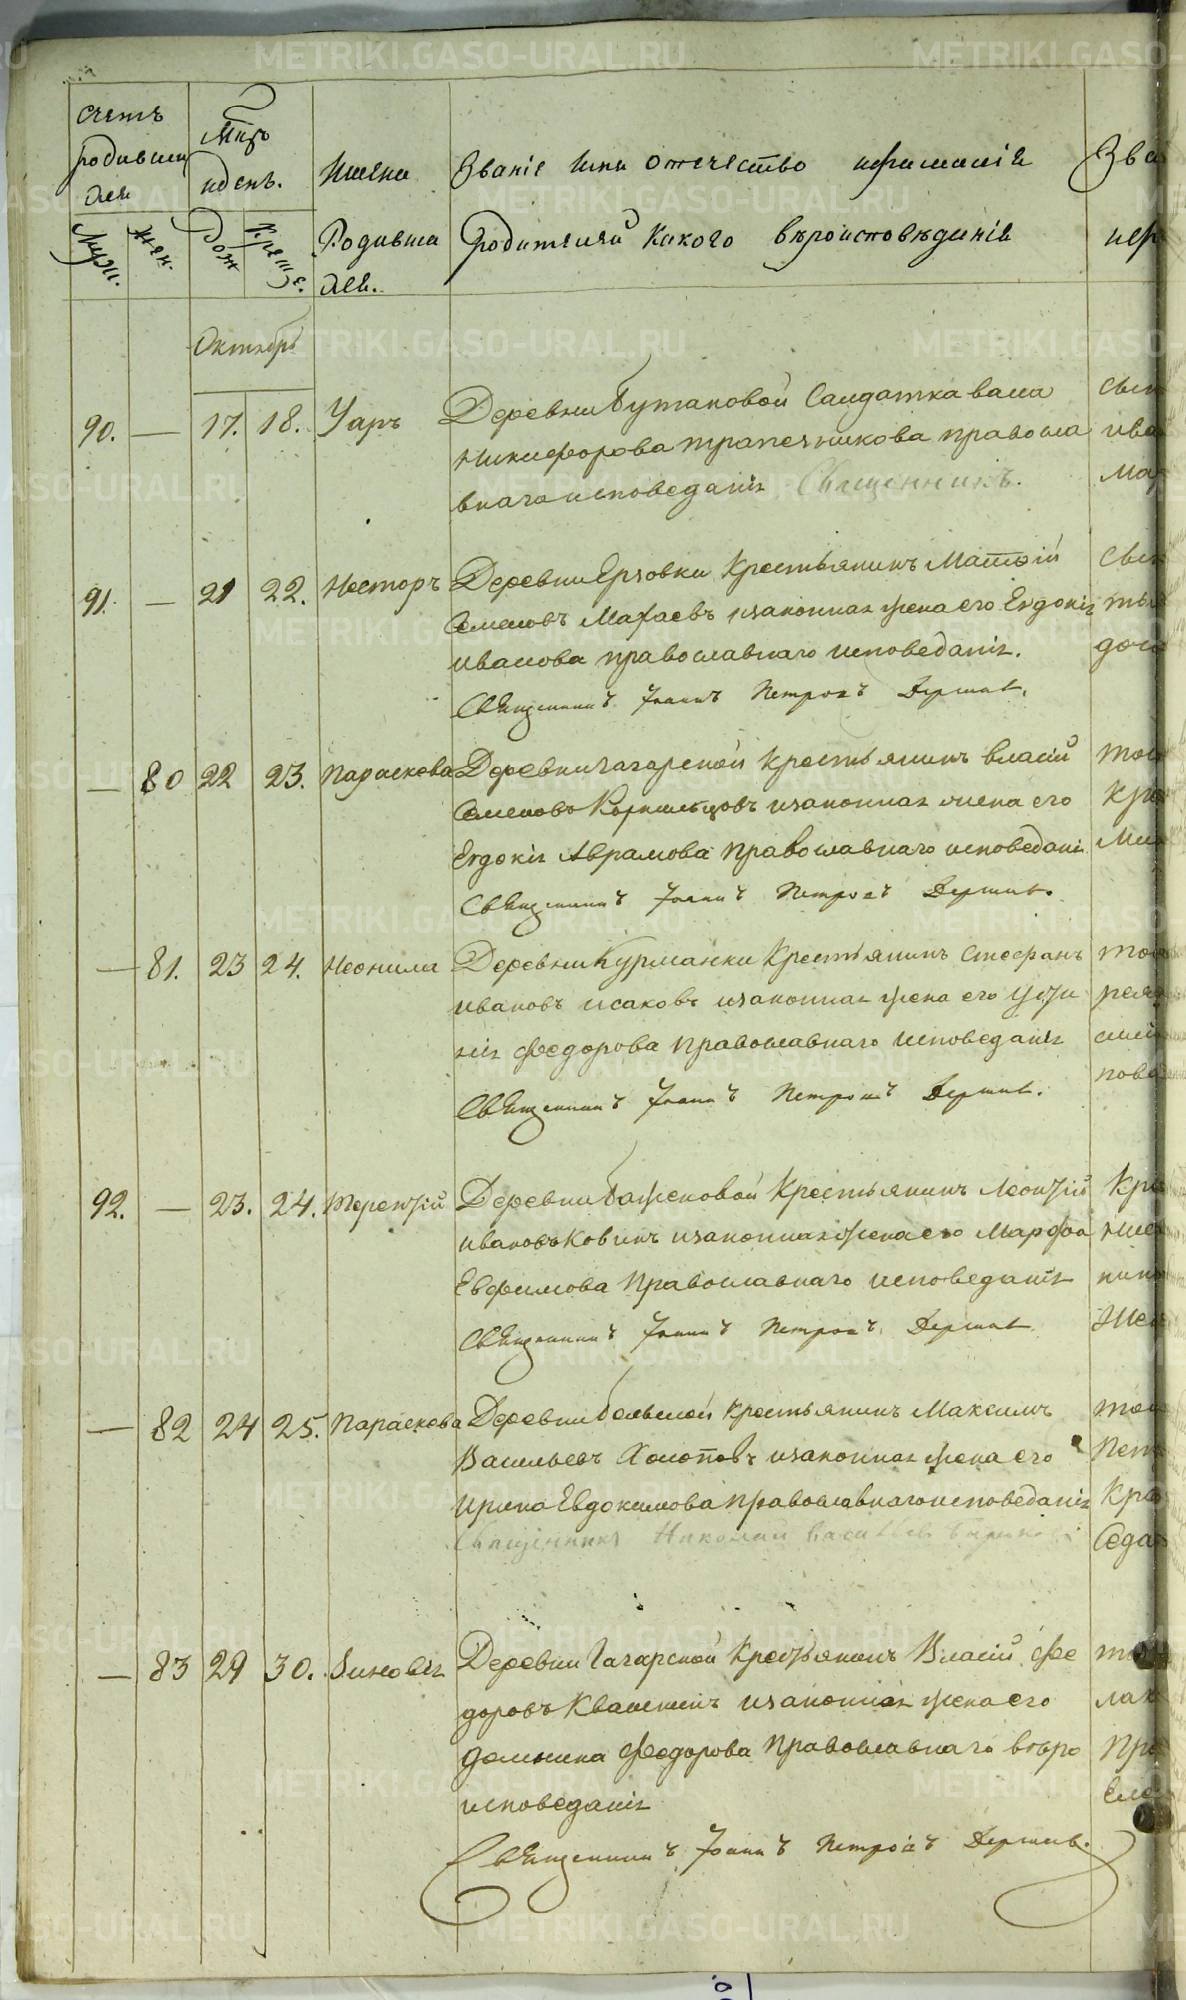 METRIKI.GASO-URAL.RU
Счетъ
родивши
хся
Муж.
Жен.
Мцъ
и день.
Рож
Креще.
Имена
Родивши
хся.
Званіе имя отечество и фамилія
родителей какого вѣроисповѣданія
Зва
Октябрь
90. — 17. 18. Уаръ
Деревни Бутаковой Салдатка васа
Никифорова трапезникова правосла
внаго исповеданія Священникъ.
91. — 21 22. Несторъ
Деревни Ерзовки Крестьянинъ Матѳій
Семеновъ Махаевъ и законная жена его Евдокія
иванова православнаго исповеданія.
Священникъ Іоаннъ Петровъ
— 80 22 23. Параскова
Деревни Гагарской крестьянинъ власий
Семеновъ Кормильцовъ и законная жена его
Евдокія Аврамова православнаго исповеданія
Священникъ Іоаннъ Петровъ
— 81. 23 24. Неонила
Деревни Курманки Крестьянинъ Стефанъ
ивановъ исаковъ и законная жена его
нія Федорова православнаго исповеданія
Священникъ Іоаннъ Петровъ
92. — 23. 24. Терентій
Деревни Баженовой Крестьянинъ Леонтій
ивановъ Ковинъ и законная жена его Марфа
Евфимова православнаго исповеданія
Священникъ Іоаннъ Петровъ
— 82 24 25. Параскова
Деревни большой крестьянинъ Максимъ
Васильевъ Холоповъ и законная жена его
ирина Евдокимова православнаго исповеданія
Священникъ Николай Васильевъ
— 83 29 30. Зиновія
Деревни Гагарской крестьянинъ Власий Фе
доровъ Квашнинъ и законная жена его
домнина Федорова православнаго вѣро
исповеданія
Священникъ Іоаннъ Петровъ